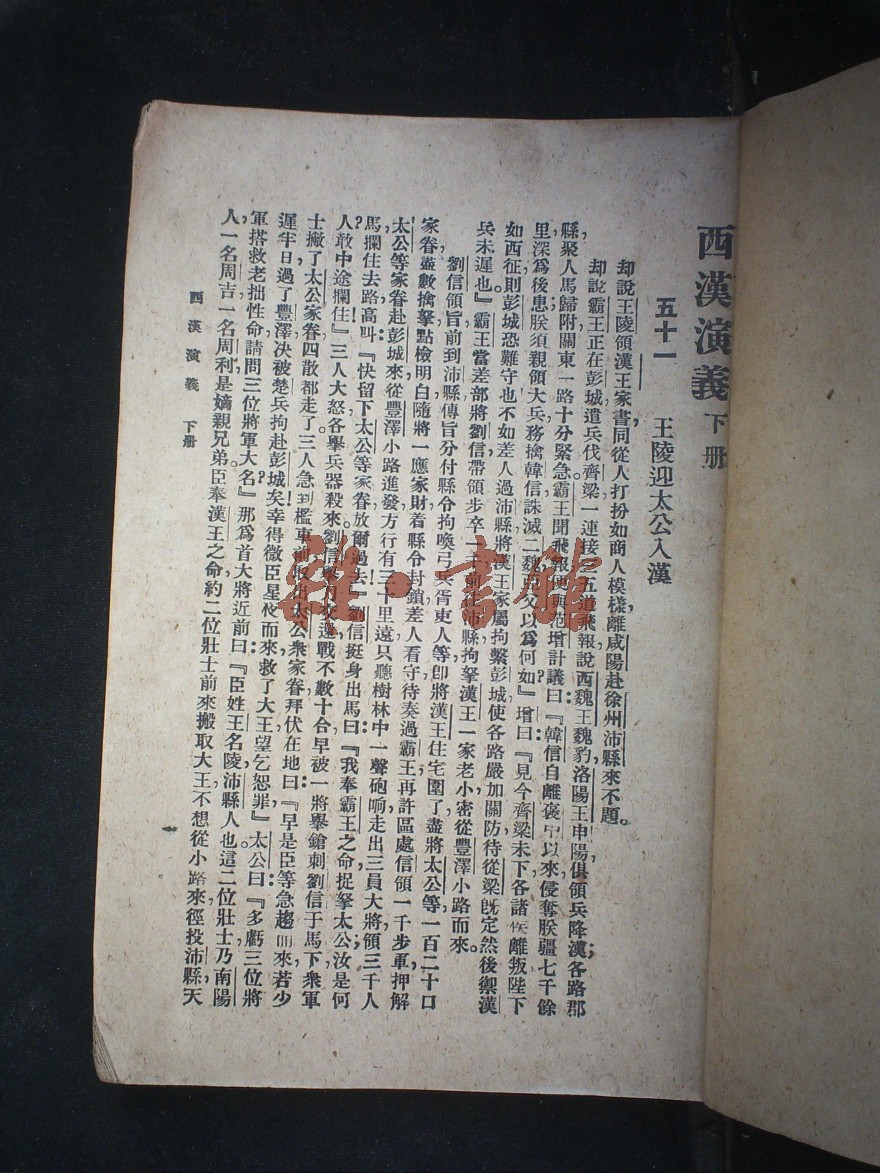 西漢演義 下册
五十一 王陵迎太公入漢
却說王陵領漢王家書,同從人打扮如商人模樣,離咸陽赴徐州沛縣來不題。
却說霸王正在彭城遣兵伐齊梁,一連接三五道飛報說:西魏王魏豹,洛陽王申陽,俱領兵降漢;各路郡
縣,聚人馬歸附;關東一路,十分緊急。霸王聞飛報,便與范增計議曰:『韓信自離褒中以來,侵奪朕疆七千餘
里,深爲後患,朕須親領大兵,務擒韓信,誅滅二魏,亞父以爲何如?』增曰:『見今齊梁未下,各諸侯離叛,陛下
如西征,則彭城恐難守也。不如差人過沛縣,將漢王家屬拘繫彭城,使各路嚴加關防,待從梁旣定,然後禦漢
兵未遲也。』霸王當差部將劉信,帶領步卒一千,前往沛縣,拘拏漢王一家老小,密從豐澤小路而來。
劉信領旨,前到沛縣,傳旨分付縣令,拘喚弓兵胥吏人等,卽將漢王住宅圍了,盡將太公等一百二十口
家眷,盡數擒拏,點檢明白,隨將一應家財,着縣令封鎖,差人看守,待奏過霸王,再許區處。信領一千步軍,押解
太公等家眷,赴彭城來,從豐澤小路進發,方行有三十里遠,只聽樹林中一聲砲响,走出三員大將,領三千人
馬,攔住去路,高叫:『快留下太公等家眷,放爾過去!』劉信挺身出馬曰:『我奉霸王之命,捉拏太公,汝是何
人,敢中途攔住?』三人大怒,各舉兵器殺來,劉信舉刀交還,戰不數十合,早被一將舉鎗刺劉信于馬下,衆軍
士撇了太公家眷,四散都走了。三人急到檻車前,放出太公衆家眷,拜伏在地曰:『早是臣等急趨而來,若少
遲半日,過了豐澤,決被楚兵拘赴彭城矣!幸得微臣星夜而來,救了大王,望乞恕罪。』太公曰:『多虧三位將
軍,搭救老拙性命,請問三位將軍大名?』那爲首大將近前曰:『臣姓王名陵,沛縣人也。這二位壯士,乃南陽
人,一名周吉,一名周利,是嫡親兄弟。臣奉漢王之命,約二位壯士,前來搬取大王,不想從小路來,徑投沛縣,天
西漢演義 下册
雜·書館